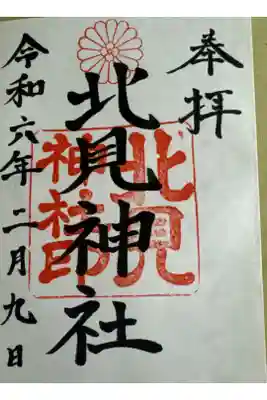 奉拝
北見神社
北見
神社印
令和六年二月九日